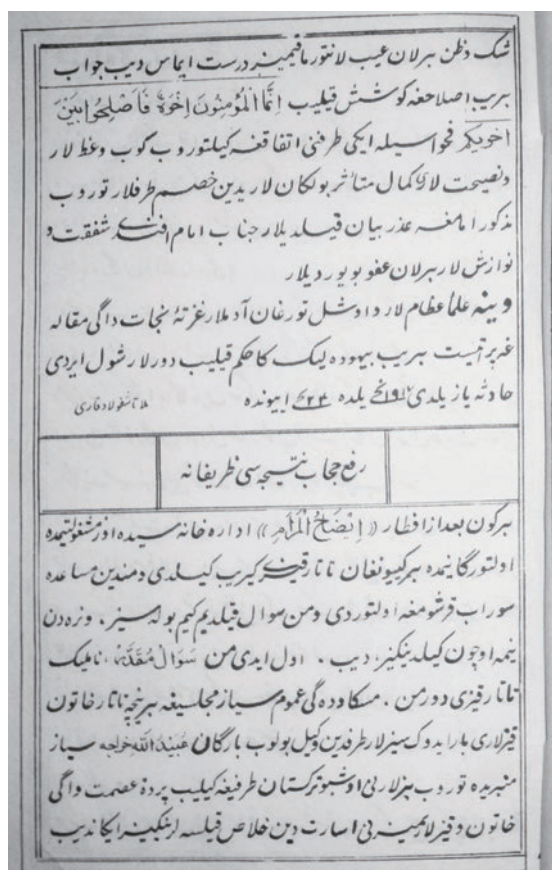 شک وظن بیرلان عیب لانتورماقیمیز درست ایماس دیب جواب
بیریب اصلاحغه کوشش قیلیب اِنَّمَا الْمُؤْمِنُونَ اِخْوَةٌ فَاَصْلِحُوا بَیْنَ
اَخَوَیْکُم فحواسیله ایکی طرفنی اتفاقغه کیلتوروب کوب وعظ لار
ونصیحت لارکا کمال متاثر بولکان لاریدین خصم طرفلار توروب
مذکور امامغه عذر بیان قیلدیلار جناب امام افندی شفقت و
نوازش لار بیرلان عفو بویوردیلار
وینه علمأ عظام لار و اوشل تورغان آدملار غزتهٔ نجات داگی مقاله
غه بیریب بیهوده لیک کا حکم قیلیب دورلار شول ایردی
حادثه یازیلدی ۱۹۱۷نچی یلده ۲۳نچی ایونده
رفع حجاب نتیجه سی ظریفانه
هرکون بعد از افطار «اِیْضَاحُ الْمَرَامِ» اداره خانه سیده اوز مشغولیتیمده
اولتورگانیمده بیر کیونغان تاتار قیزی کیریب کیلدی ومندین مساعده
سوراب قرشومغه اولتوردی ومن سوال قیلدیم کیم بوله سیز. ونره دن
نیمه اوچون کیلدینگیز، دیب. اول ایدی من سَوَال مُقَدَّمَه، نامیک
تاتار قیزی دورمن. مسکاوده گی عموم سیاز مجلسیغه بیرنچه تاتار خاتون
قیزلاری بارایدوک سیزلار طرفدین وکیل بولوب بارگان عُبَیْدُ اللّٰه خواجه سیاز
منبریده توروب بیزلارنی اوشبو ترکستان طرفیغه کیلیب پردهٔ عصمت داگی
خاتون وقیزلاریمیزنی اسارت دین خلاص قیلسه لرینگیز ایکان دیب